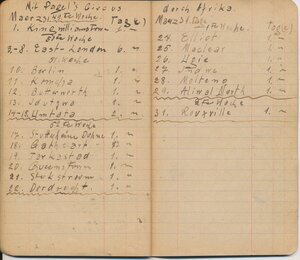 Mit Pagel's Circus
Maerz 49te Woche. Tag(e)
1. Kingwilliamstown 1. ~
50te Woche
3.-8. East-London 6. ~
51. Woche
10. Berlin 1. ~
11. Komgha 1. ~
12. Butterworth 1. ~
13. Idutywa 1. ~
14.-15. Umtata 2. ~
Woche
17. Stutterheim 1. ~
18. Cathcart 1. ~
19. Tarkastad 1. ~
20. Queenstown 1. ~
21. Sterkstroom 1. ~
22. Dordrecht 1. ~
durch Afrika.
Maerz Woche. Tag(e)
24. Elliot 1. ~
25. Maclear 1. ~
26. Ugie 1. ~
27. 1. ~
28. Molteno 1. ~
29. Aliwal North 1. ~
Woche
31. Rouxville 1. ~